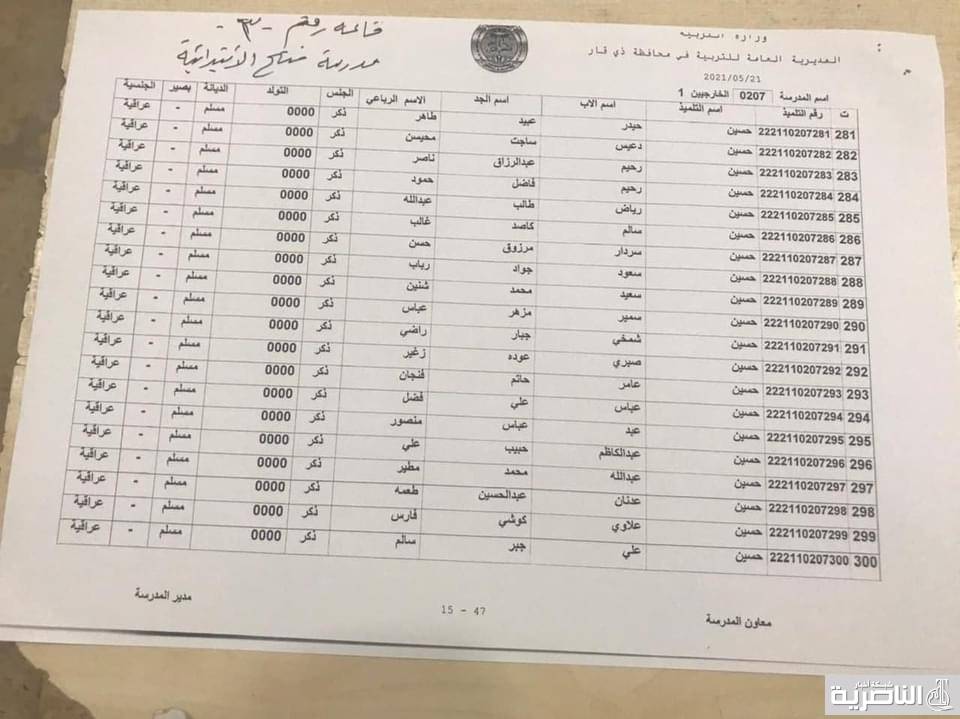 وزارة التربية
المديرية العامة للتربية في محافظة ذي قار
قائمة رقم -٣-
مدرسة مناهج الابتدائية
2021/05/21
اسم المدرسة 0207 الخارجيين 1
ت رقم التلميذ اسم التلميذ اسم الاب اسم الجد الاسم الرباعي الجنس التولد الديانة بصير الجنسية
281 222110207281 حسين حيدر عبيد طاهر ذكر 0000 مسلم - عراقية
282 222110207282 حسين دعيس ساجت محيسن ذكر 0000 مسلم - عراقية
283 222110207283 حسين رحيم عبدالرزاق ناصر ذكر 0000 مسلم - عراقية
284 222110207284 حسين رحيم فاضل حمود ذكر 0000 مسلم - عراقية
285 222110207285 حسين رياض طالب عبدالله ذكر 0000 مسلم - عراقية
286 222110207286 حسين سالم كاصد غالب ذكر 0000 مسلم - عراقية
287 222110207287 حسين سردار مرزوق حسن ذكر 0000 مسلم - عراقية
288 222110207288 حسين سعود جواد رياب ذكر 0000 مسلم - عراقية
289 222110207289 حسين سعيد محمد شنين ذكر 0000 مسلم - عراقية
290 222110207290 حسين سمير مزهر عباس ذكر 0000 مسلم - عراقية
291 222110207291 حسين شمخي جبار راضي ذكر 0000 مسلم - عراقية
292 222110207292 حسين صبري عوده زغير ذكر 0000 مسلم - عراقية
293 222110207293 حسين عامر حاتم فنجان ذكر 0000 مسلم - عراقية
294 222110207294 حسين عباس علي فضل ذكر 0000 مسلم - عراقية
295 222110207295 حسين عبد عباس منصور ذكر 0000 مسلم - عراقية
296 222110207296 حسين عبدالكاظم حبيب علي ذكر 0000 مسلم - عراقية
297 222110207297 حسين عبدالله محمد مطير ذكر 0000 مسلم - عراقية
298 222110207298 حسين عدنان عبدالحسين طعمه ذكر 0000 مسلم - عراقية
299 222110207299 حسين علاوي كوشي فارس ذكر 0000 مسلم - عراقية
300 222110207300 حسين علي جبر سالم ذكر 0000 مسلم - عراقية
معاون المدرسة
15 - 47
مدير المدرسة
شبكة أخبار
الناصرية